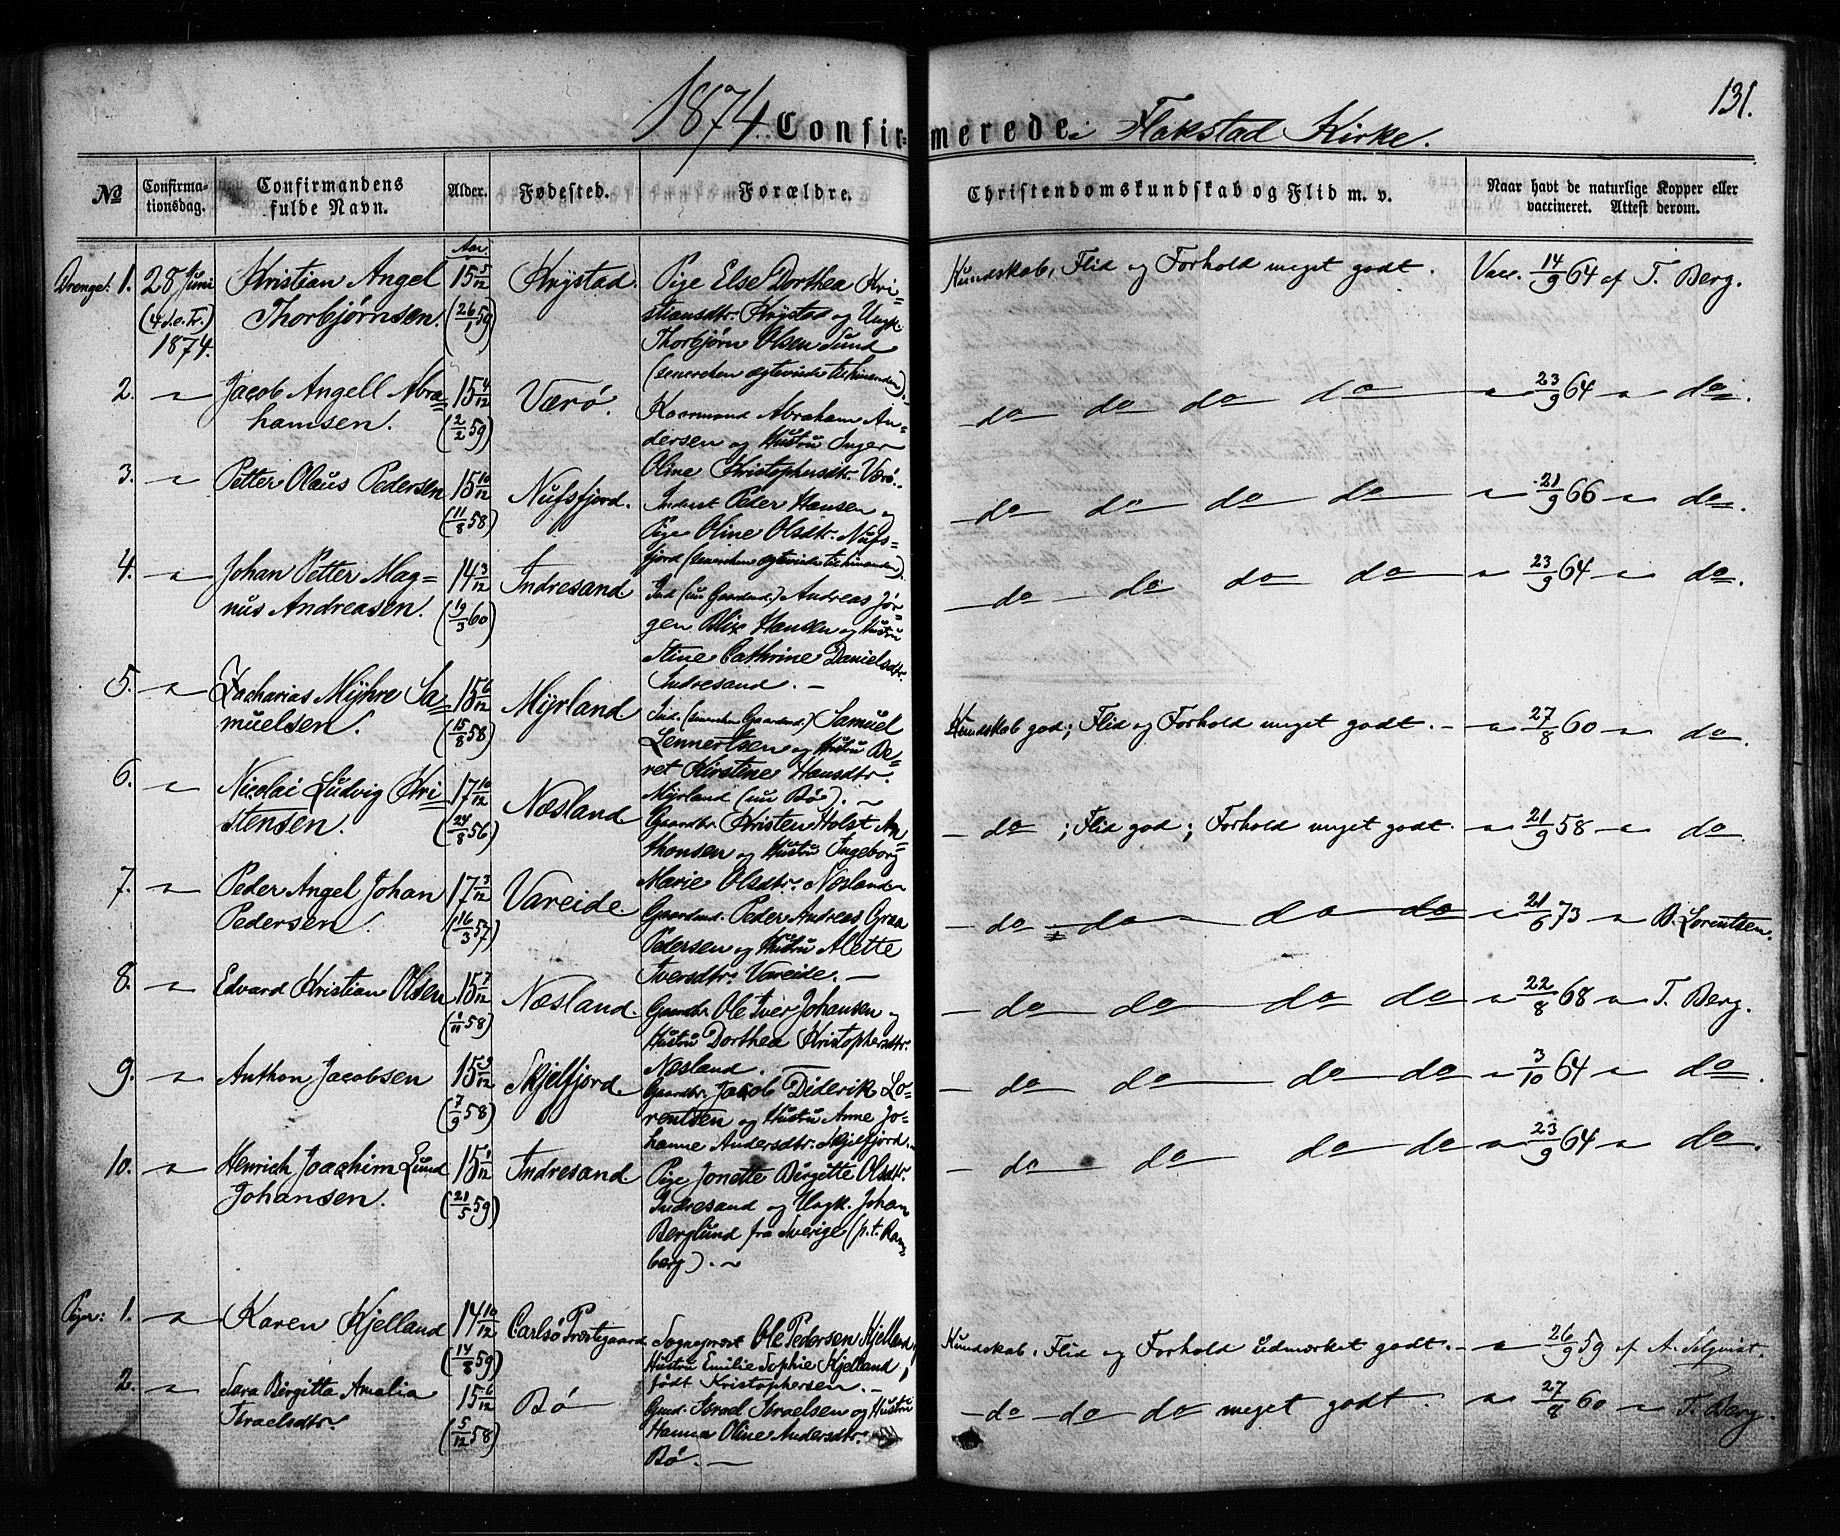 131.
1874. Confirmerede i Flakstad Kirke.
No
Confirma-
tionsdag.
Confirmandens
fulde Navn.
Alder.
Fødested.
Forældre.
Christendomskundskab og Flid m. v.
Naar havt de naturlige Kopper eller
vaccineret. Attest derom.
Drenge: 1.
28 Juni
(4 S. e. Tr.)
1874.
Kristian Angel
Thorbjørnsen.
Aar.
15 5/12
(26/1 59)
Krystad.
Pige Else Dorthea Kri-
stiansdtr. Krystad og Ungk.
Thorbjørn Olsen Sund
(senerehen ægteviede til hinanden).
Kundskab, Flid og Forhold meget godt.
Vacc. 14/9 64 af T. Berg.
2.
"
Jacob Angell Abra-
hamsen.
15 4/12
(2/2 59)
Værø.
Kaarmand Abraham An-
dersen og Hustru Inger
Oline Kristophersdtr. Værø.
do do do do
" 23/9 64 " do.
3.
"
Petter Olaus Pedersen
15 10/12
(11/8 58)
Nufsfjord.
Inderst Peder Hansen og
Pige Oline Olsdtr. Nufs-
fjord (senerehen ægteviede til hinanden).
do do do do
" 21/9 66 " do.
4.
"
Johan Petter Mag-
nus Andreasen.
14 3/12
(19/3 60)
Indresand
Ind (nu Gaardmd.) Andreas Jør-
gen Blix Hansen og Hustru
Stine Cathrine Danielsdtr.
Indresand.
do do do do
" 23/9 64 " do.
5.
"
Zacharias Myhre Sa-
muelsen.
15 6/12
(15/8 58)
Myrland
Ind. (senerehen Gaardmd.) Samuel
Lennertsen og Hustru Be-
ret Kirstine Hansdtr.
Myrland (nu Bø).
Kundskab god; Flid og Forhold meget godt.
" 27/8 60 " do.
6.
"
Nicolai Ludvig Kri-
stensen.
17 10/12
(24/8 56)
Næsland
Gaardbr. Kristen Holst An-
thonsen og Hustru Ingeborg
Marie Olsdtr. Næsland
do ; Flid god; Forhold meget godt.
" 21/9 58 " do
7.
"
Peder Angel Johan
Pedersen.
17 3/12
(16/3 57)
Vareide
Gaardmd. Peder Andreas Graa
Pedersen og Hustru Alette
Iversdtr. Vareide.
do do do do
" 21/6 73 " B. Lorentsen.
8.
"
Edvard Kristian Olsen
15 7/12
(1/11 58)
Næsland.
Gaardbr. Ole Iver Johansen og
Hustru Dorthea Kristophersdtr.
Næsland.
do do do do
" 22/8 68 " T. Berg.
9.
"
Anthon Jacobsen
15 9/12
(7/9 58)
Skjelfjord
Gaardbr. Jacob Diderik Lo-
rentsen og Hustru Anne Jo-
hanne Andersdtr. Skjelfjord.
do do do do
" 3/10 64 " do.
10.
"
Henrich Joachim Lund
Johansen.
15 1/12
(21/5 59)
Indresand.
Pige Jonette Birgitte Olsdtr.
Indresand og Ungk. Johan
Berglund fra Sverige (p.t. Ram-
berg).
do do do do
" 23/9 64 " do.
Piger: 1.
"
Karen Kjelland
14 10/12
(14/8 59)
Carlsø Præstegaard
Sognepræst Ole Pedersen Kjelland,
Hustru Emilie Sophie Kjelland,
født Kristophersen.
Kundskab, Flid og Forhold udmærket godt.
" 26/9 59 af A. Selqvist.
2.
"
Sara Birgitta Amalia
Israelsdtr.
15 6/12
(5/12 58)
Bø
Gmd. Israel Israelsen og Hustru
Hanna Oline Andersdtr.
Bø.
do do do meget godt.
" 27/8 60 " T. Berg.